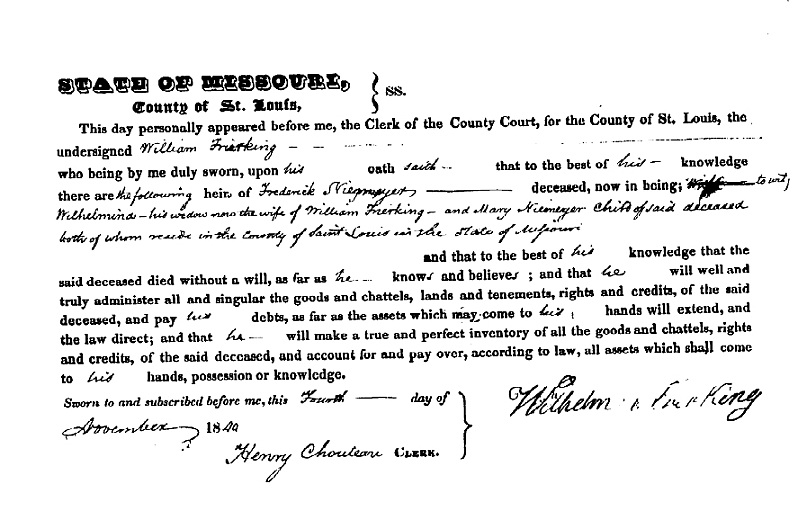 STATE OF MISSOURI, } ss.
County of St. Louis,
This day personally appeared before me, the Clerk of the County Court, for the County of St. Louis, the
undersigned William Frierking
who being by me duly sworn, upon his oath saith that to the best of his knowledge
there are the following heirs of Frederick Niemeyer deceased, now in being; to wit,
Wilhelmina - his widow now the wife of William Frierking - and Mary Niemeyer Child of said deceased
both of whom reside in the County of Saint Louis in the State of Missouri
and that to the best of his knowledge that the
said deceased died without a will, as far as he knows and believes; and that he will well and
truly administer all and singular the goods and chattels, lands and tenements, rights and credits, of the said
deceased, and pay his debts, as far as the assets which may come to his hands will extend, and
the law direct; and that he will make a true and perfect inventory of all the goods and chattels, rights
and credits, of the said deceased, and account for and pay over, according to law, all assets which shall come
to his hands, possession or knowledge.
Sworn to and subscribed before me, this Fourth day of
November 184
Henry Chouteau CLERK.
Wilhelm